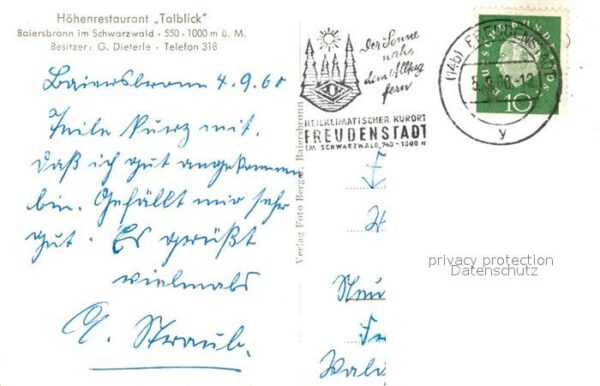 Höhenrestaurant „Talblick"
Baiersbronn im Schwarzwald - 550 - 1000 m ü. M.
Besitzer: G. Dieterle - Telefon 318
Baiersbronn 4.9.60
Teile kurz mit,
daß ich gut angekommen
bin. Gefällt mir sehr
gut. Es grüßt
vielmals
G. Straub.
Verlag Foto Berger, Baiersbronn
der Sonne
nah,
dem Alltag
fern
HEILKLIMATISCHER KURORT
FREUDENSTADT
IM SCHWARZWALD, 740-1000 m
(14b) FREUDENSTADT
10
y
privacy protection
Datenschutz